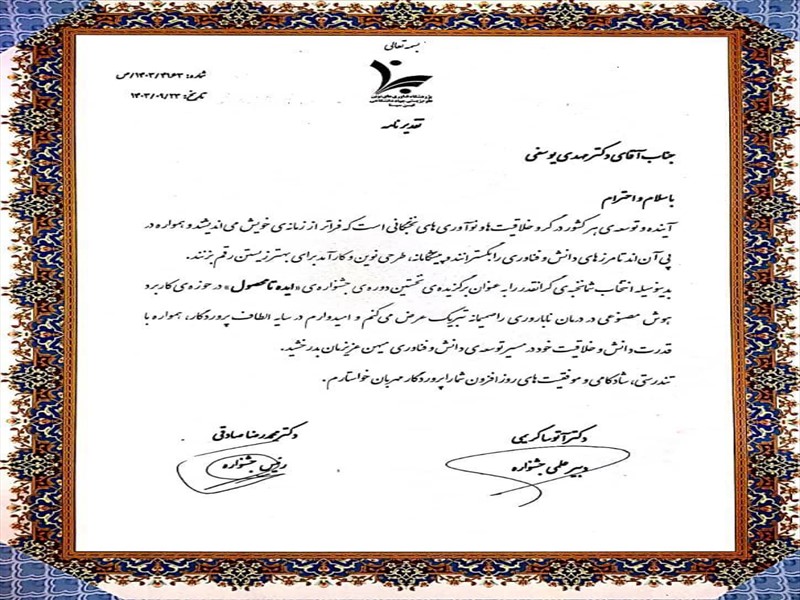 بسمه تعالی
شماره: ۱۴۰۳/۳۱۶۳/ص
تاریخ: ۱۴۰۳/۰۹/۲۳
پژوهشگاه فناوری‌های نوین
علوم زیستی جهاد دانشگاهی
ابن سینا
تقدیرنامه
جناب آقای دکتر مهدی یوسفی
با سلام و احترام
آینده و توسعه‌ی هر کشور در گرو خلاقیت‌ها و نوآوری‌های نخبگانی است که فراتر از زمانه‌ی خویش می‌اندیشند و همواره در
پی آن‌اند تا مرزهای دانش و فناوری را بگسترانند و پیشگامانه، طرحی نوین و کارآمد برای بهتر زیستن رقم بزنند.
بدینوسیله انتخاب شما نخبه‌ی گرانقدر را به عنوان برگزیده‌ی نخستین دوره‌ی جشنواره‌ی «ایده تا محصول» در حوزه‌ی کاربرد
هوش مصنوعی در درمان ناباروری را صمیمانه تبریک عرض می‌کنم و امیدوارم در سایه الطاف پروردگار، همواره با
قدرت دانش و خلاقیت خود در مسیر توسعه‌ی دانش و فناوری میهن عزیزمان بدرخشید.
تندرستی، شادکامی و موفقیت‌های روزافزون شما را از پروردگار مهربان خواستارم.
دکتر آتوسا کریمی
دبیر علمی جشنواره
دکتر محمدرضا صادقی
رئیس جشنواره